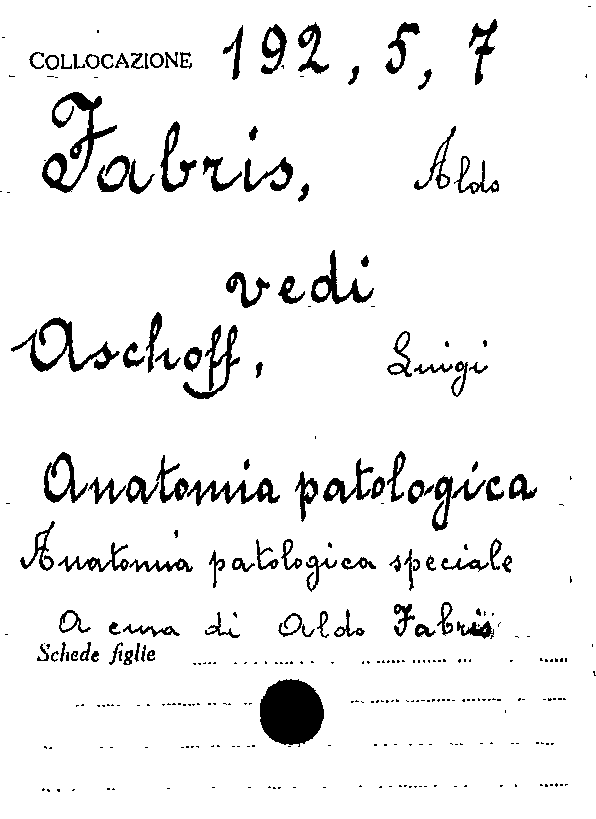 COLLOCAZIONE 192, 5, 7
Fabris, Aldo
vedi
Aschoff, Luigi
Anatomia patologica
Anatomia patologica speciale
A cura di Aldo Fabris
Schede figlie